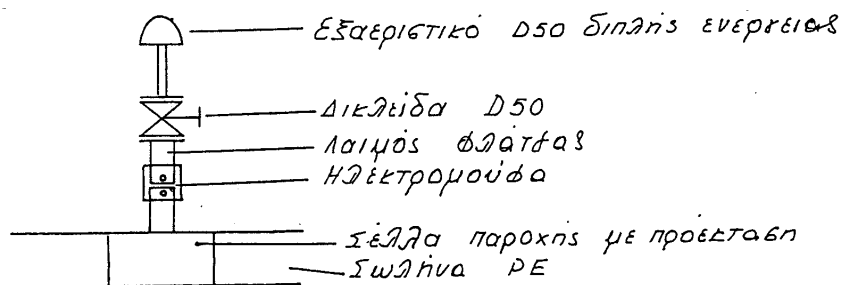 Εξαεριστικό D50 διπλής ενέργειας
Δικλείδα D50
Λαιμός φλάτζας
Ηλεκτρομούφα
Σέλλα παροχής με προέκταση
Σωλήνα PE